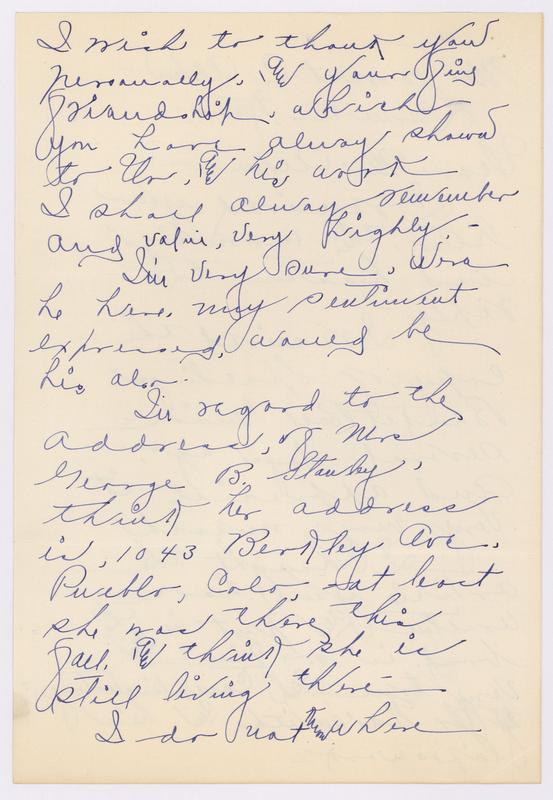 I wish to thank you
personally, for your fine
friendship, which
you have alway showed
to Un, & his work
I shall alway remember
and value, very highly. -
I'm very sure, were
he here, my sentiment
expressed, would be
his also.
In regard to the
address, of Mrs
George B. Stanky,
think her address
is, 1043 Berkley Ave.
Pueblo, Colo, - at least
she was there this
fall, & think she is
still living there
I do not know where